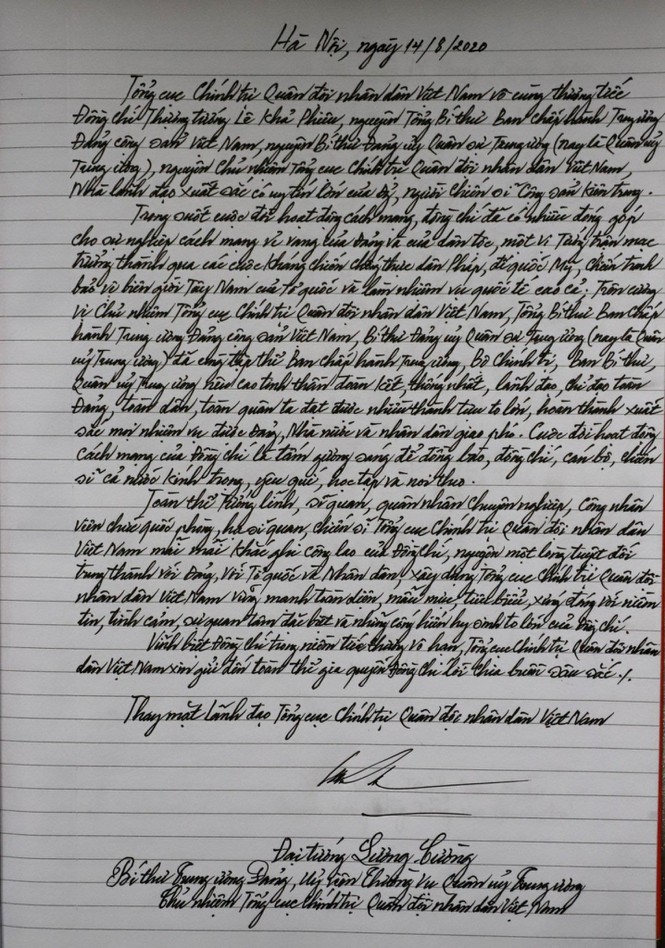 Hà Nội, ngày 14/8/2020
Tổng cục Chính trị Quân đội nhân dân Việt Nam vô cùng thương tiếc
Đồng chí Thượng tướng Lê Khả Phiêu, nguyên Tổng Bí thư Ban Chấp hành Trung ương
Đảng cộng sản Việt Nam, nguyên Bí thư Đảng ủy Quân sự Trung ương (nay là Quân uỷ
Trung ương), nguyên Chủ nhiệm Tổng cục Chính trị Quân đội nhân dân Việt Nam,
Nhà lãnh đạo xuất sắc có uy tín lớn của Đảng, người chiến sĩ Cộng sản kiên trung.
Trong suốt cuộc đời hoạt động cách mạng, đồng chí đã có nhiều đóng góp
cho sự nghiệp cách mạng vẻ vang của Đảng và của dân tộc, một vị Tướng trận mạc
trưởng thành qua các cuộc kháng chiến chống thực dân Pháp, đế quốc Mỹ, chiến tranh
bảo vệ biên giới Tây Nam của Tổ quốc và làm nhiệm vụ quốc tế cao cả; Trên cương
vị Chủ nhiệm Tổng cục Chính trị Quân đội nhân dân Việt Nam, Tổng Bí thư Ban Chấp
hành Trung ương Đảng cộng sản Việt Nam, Bí thư Đảng uỷ Quân sự Trung ương (nay là Quân
uỷ Trung ương) đã cùng tập thể Ban Chấp hành Trung ương, Bộ Chính trị, Ban Bí thư,
Quân uỷ Trung ương nêu cao tinh thần đoàn kết thống nhất, lãnh đạo, chỉ đạo toàn
Đảng, toàn dân, toàn quân ta đạt được nhiều thành tựu to lớn, hoàn thành xuất
sắc mọi nhiệm vụ được Đảng, Nhà nước và nhân dân giao phó. Cuộc đời hoạt động
cách mạng của Đồng chí là tấm gương sáng để đồng bào, đồng chí, cán bộ, chiến
sĩ cả nước kính trọng, yêu quí, học tập và noi theo.
Toàn thể tướng lĩnh, sĩ quan, quân nhân chuyên nghiệp, công nhân
viên chức quốc phòng, hạ sĩ quan, chiến sĩ Tổng cục Chính trị Quân đội nhân dân
Việt Nam mãi mãi khắc ghi công lao của Đồng chí, nguyện một lòng tuyệt đối
trung thành với Đảng, với Tổ quốc và Nhân dân, xây dựng Tổng cục Chính trị Quân đội
nhân dân Việt Nam vững mạnh toàn diện, mẫu mực, tiêu biểu, xứng đáng với niềm
tin, tình cảm, sự quan tâm đặc biệt và những cống hiến hy sinh to lớn của Đồng chí.
Vĩnh biệt Đồng chí trong niềm tiếc thương vô hạn, Tổng cục Chính trị Quân đội nhân
dân Việt Nam xin gửi đến toàn thể gia quyến Đồng chí lời chia buồn sâu sắc./.
Thay mặt lãnh đạo Tổng cục Chính trị Quân đội nhân dân Việt Nam
Đại tướng Lương Cường
Bí thư Trung ương Đảng, Uỷ viên Thường vụ Quân uỷ Trung ương
Chủ nhiệm Tổng cục Chính trị Quân đội nhân dân Việt Nam